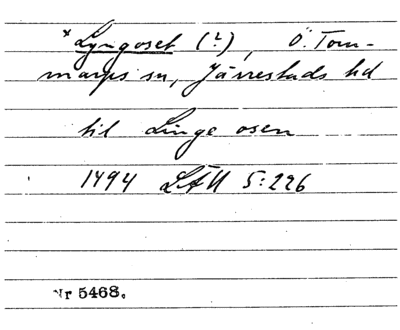 * Lyngoset (?), Ö. Tom-
marps sn, Järrestads hd
til Linge osen
1494 LÄU 5:226
Nr 5468.